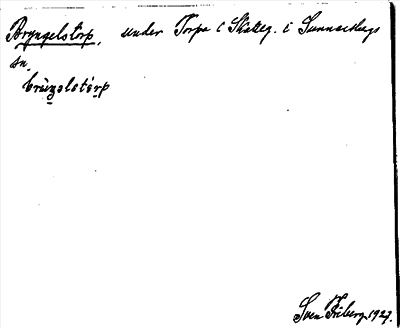 Bryngelstorp, under Torpa i Skatteg. i Sunnerbergs
sn.
bryŋəlstơrp
Sven Friberg 1927.